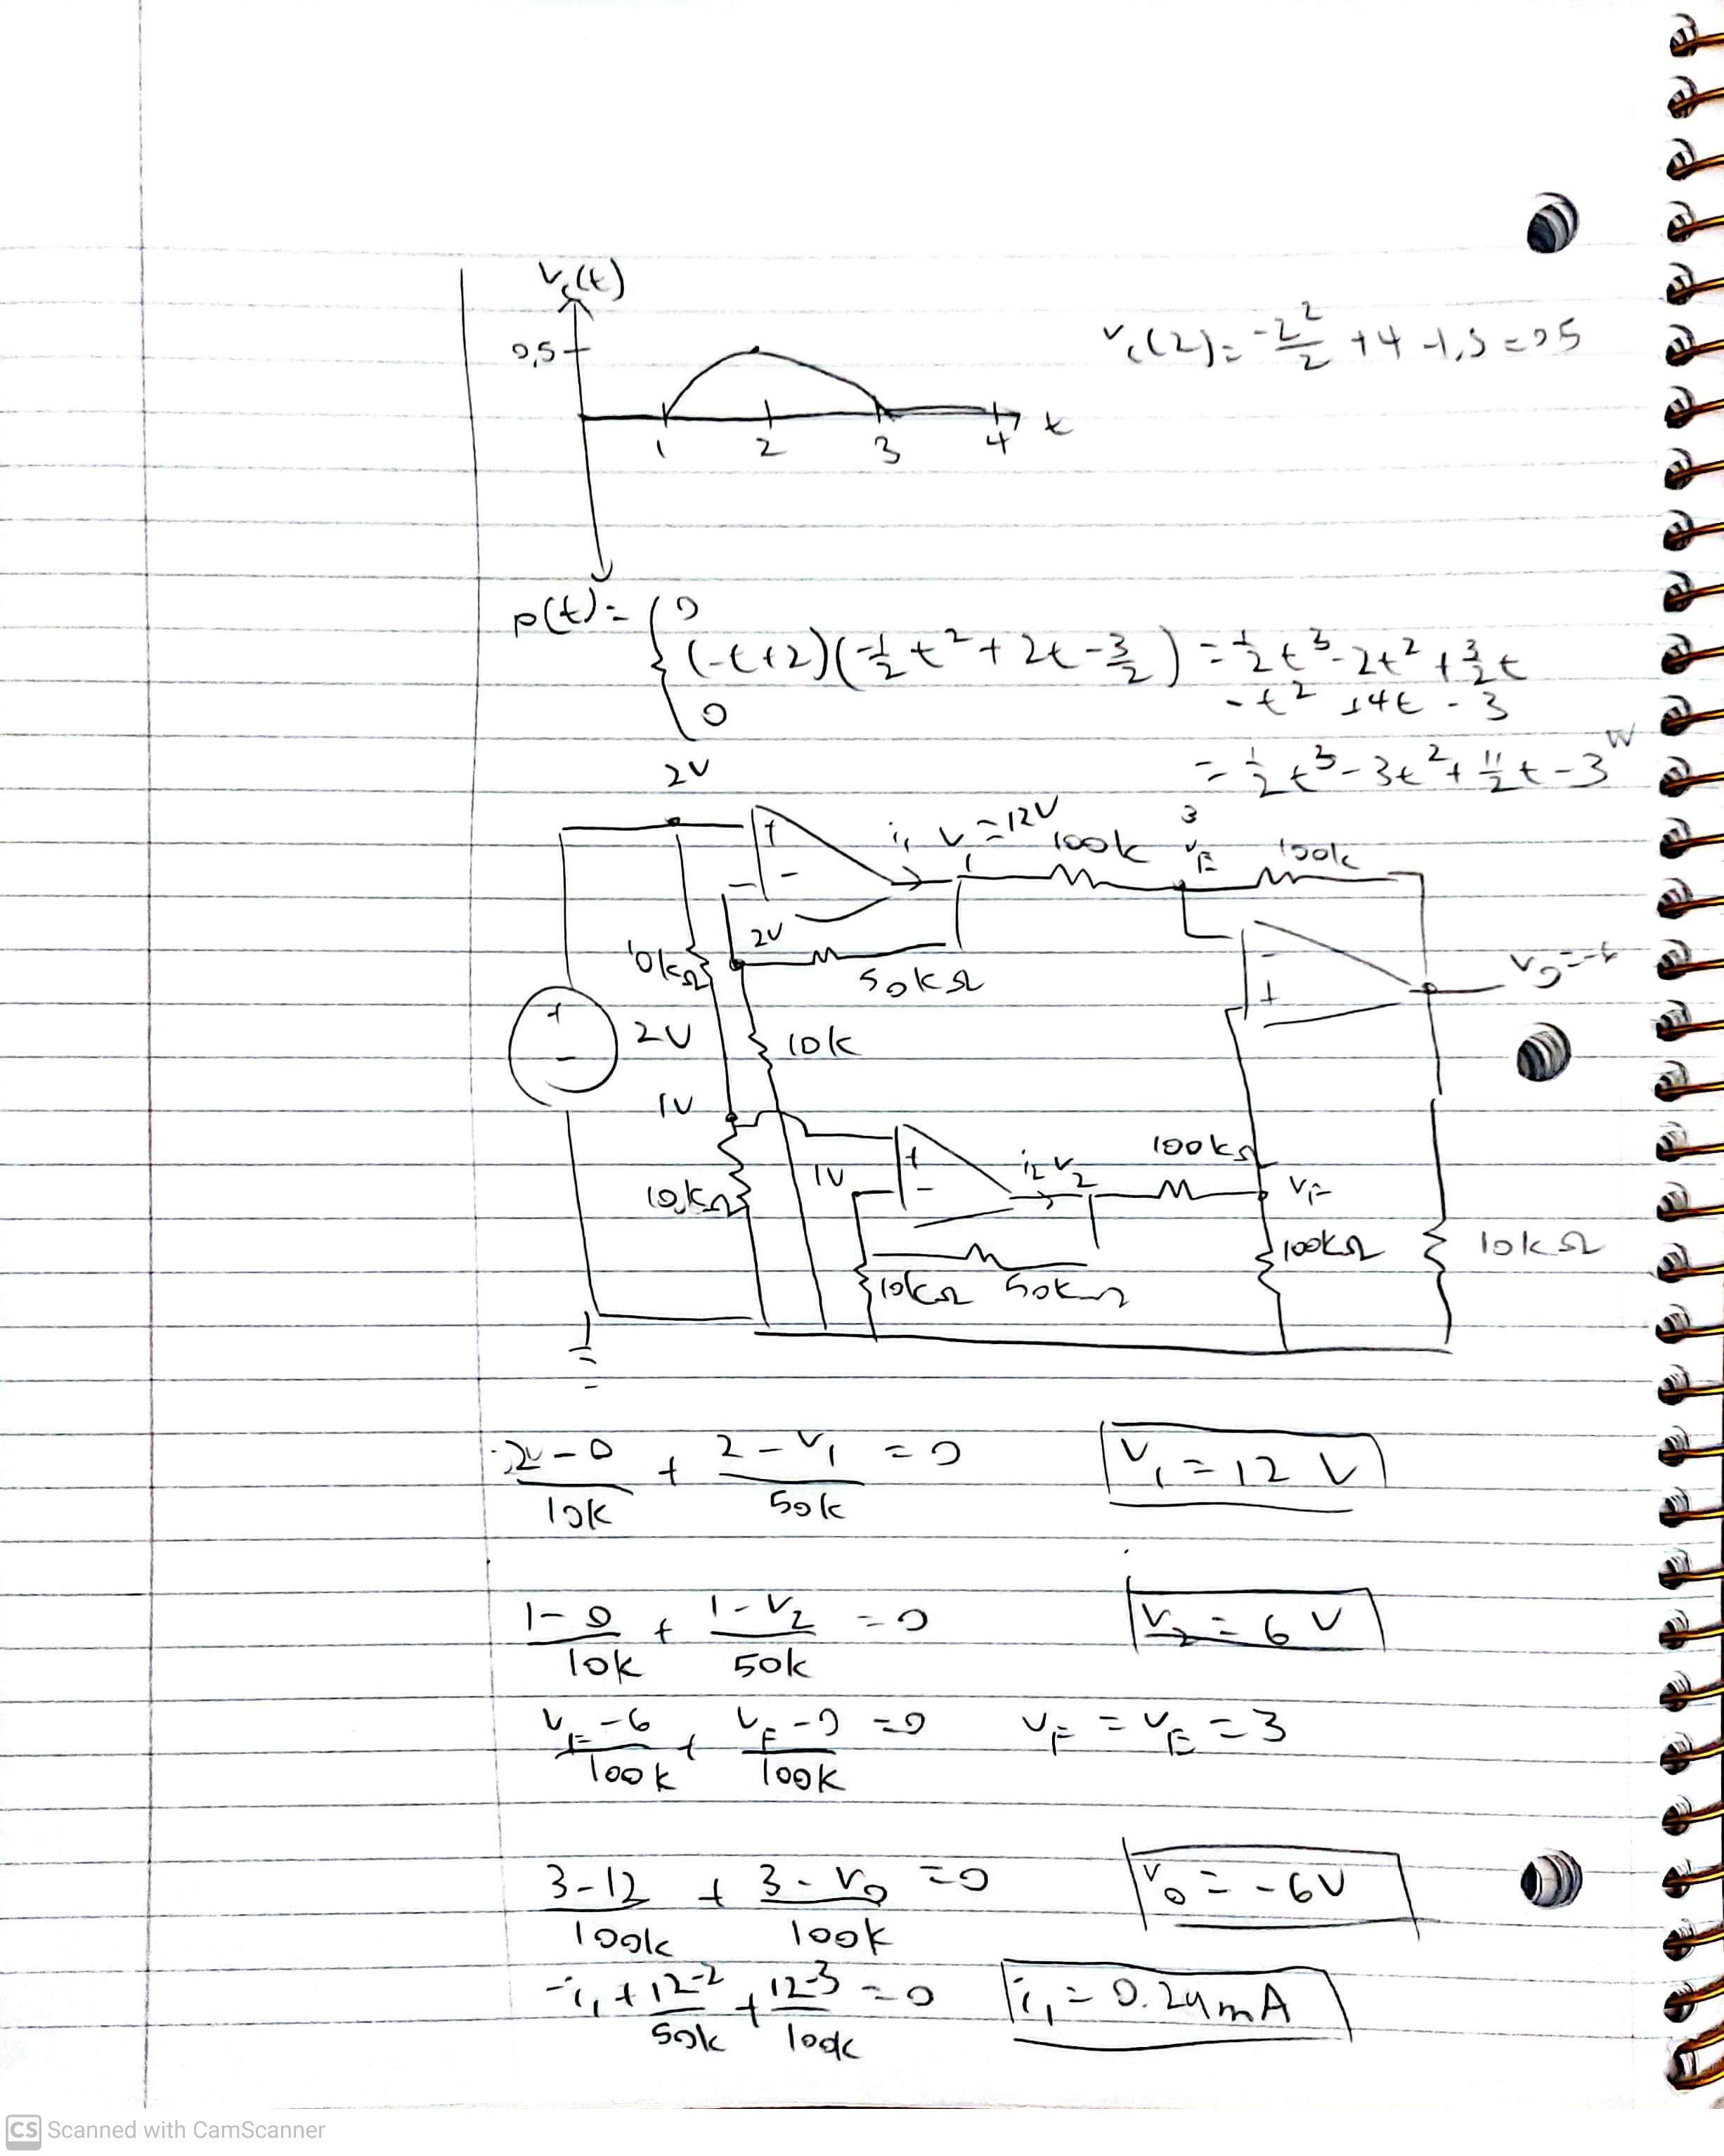 v_c(t)
0,5
1 2 3 4 t
v_c(2) = -2²/2 + 4 - 1,5 = 05
p(t) = { 0
(-t+2)(-1/2 t² + 2t - 3/2) = 1/2 t³ - 2t² + 3/2 t
- t² + 4t - 3
0
= 1/2 t³ - 3t² + 11/2 t - 3 W
2V
+ - i₁ V₁ = 12V 100k 3 V_E 100k
2V
10kΩ 50kΩ - + V₀ = -6
+ - 2V 10k
1V
1V + - i₂ V₂ 100kΩ V_F
10kΩ 10kΩ 50kΩ 100kΩ 10kΩ
2V-0/10k + 2-V₁/50k = 0 V₁ = 12 V
1-0/10k + 1-V₂/50k = 0 V₂ = 6 V
V_F-6/100k + V_F-0/100k = 0 V_F = V_E = 3
3-12/100k + 3-V₀/100k = 0 V₀ = -6V
-i₁ + 12-2/50k + 12-3/100k = 0 i₁ = 0.29mA
CS Scanned with CamScanner